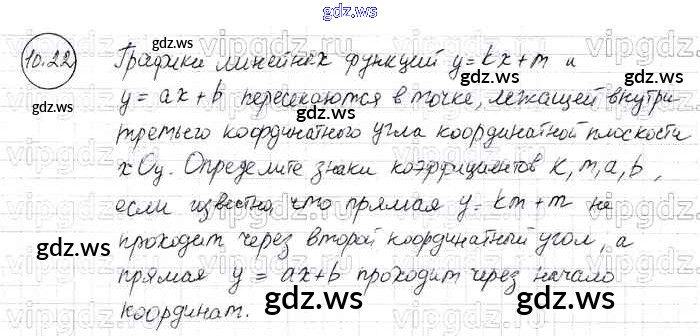 gdz.ws
10.22 Графики линейных функций y=kx+m и
y=ax+b пересекаются в точке, лежащей внутри
третьего координатного угла координатной плоскости
xOy. Определите знаки коэффициентов k, m, a, b,
если известно, что прямая y=km+m не
проходит через второй координатный угол, а
прямая y=ax+b проходит через начало
координат.
gdz.ws